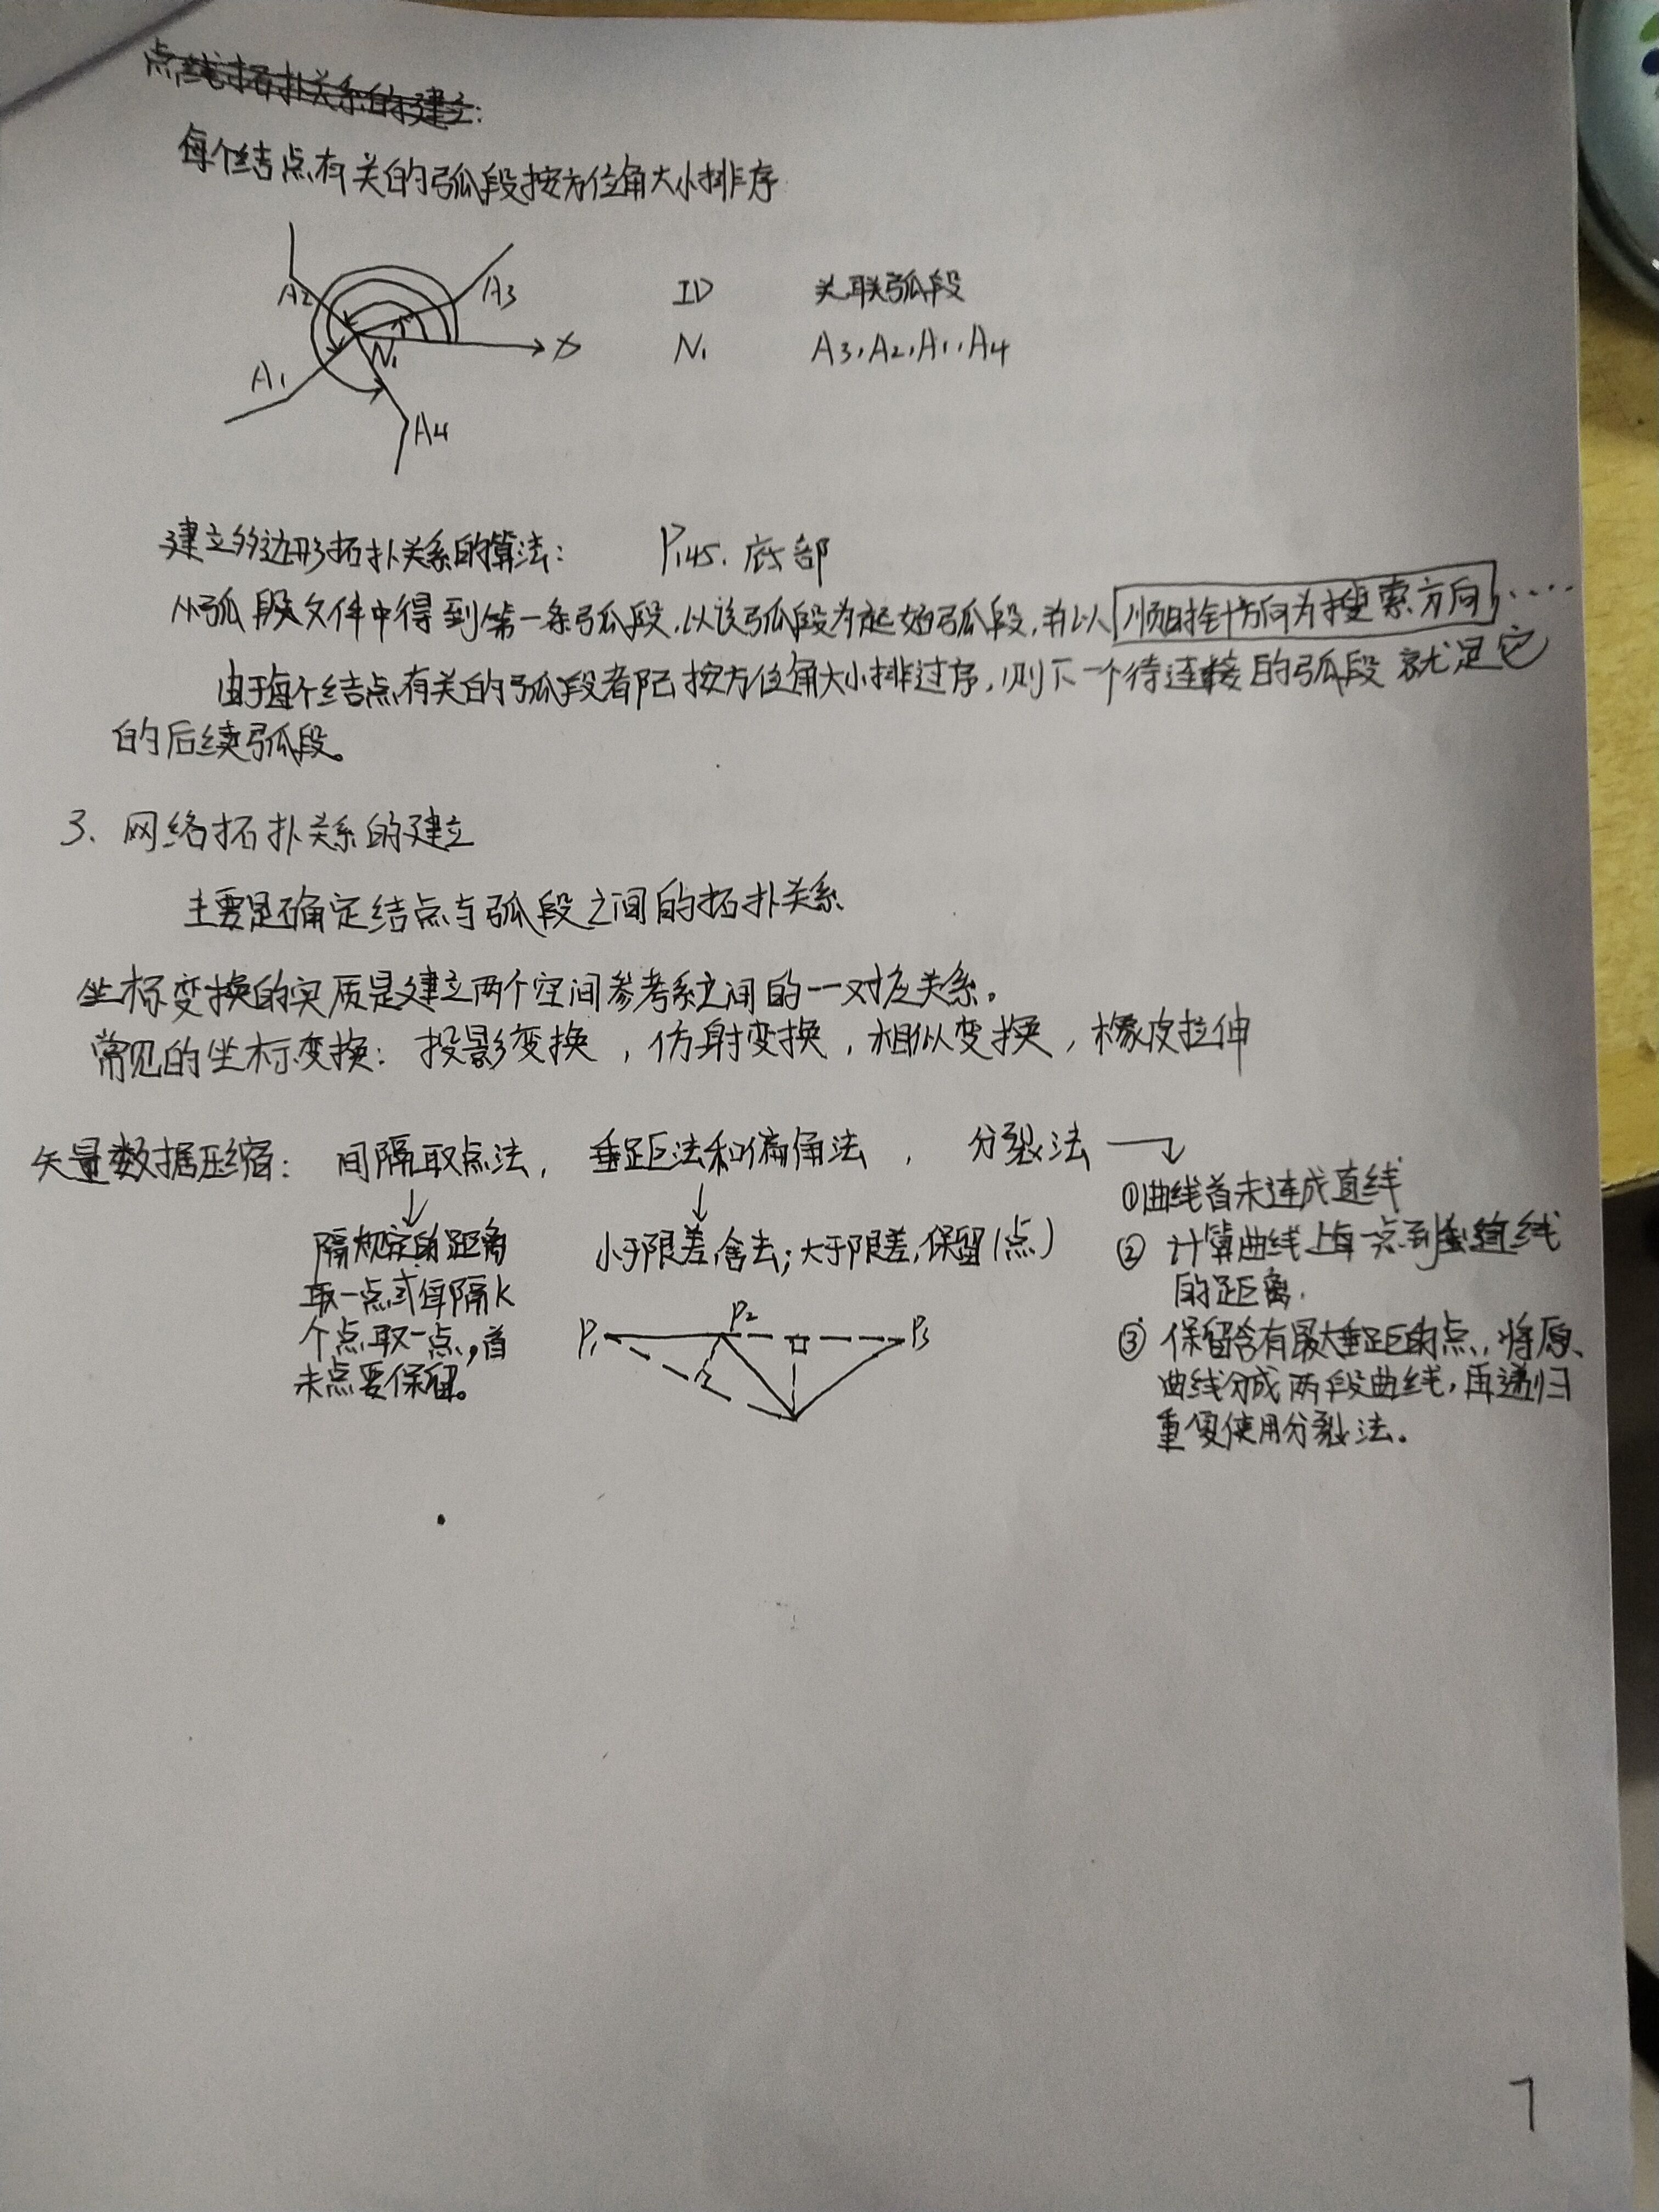 点线拓扑关系的建立:
每个结点有关的弧段按方位角大小排序
A2 A3 ID 关联弧段
N1 X N1 A3,A2,A1,A4
A1
A4
建立多边形拓扑关系的算法: P145.底部
从弧段文件中得到第一条弧段,以该弧段为起始弧段,并以顺时针方向为搜索方向,····
由于每个结点有关的弧段都已按方位角大小排过序,则下一个待连接的弧段就是它
的后续弧段。
3、网络拓扑关系的建立
主要是确定结点与弧段之间的拓扑关系
坐标变换的实质是建立两个空间参考系之间的一一对应关系。
常见的坐标变换:投影变换,仿射变换,相似变换,橡皮拉伸
矢量数据压缩: 间隔取点法, 垂距法和偏角法, 分裂法
隔规定的距离
取一点或每隔k
个点取一点,首
末点要保留。
小于限差,舍去;大于限差,保留(点)
P1 P2 P3
①曲线首末连成直线
② 计算曲线上每一点到直线
的距离.
③ 保留含有最大垂距的点,将原
曲线分成两段曲线,再递归
重复使用分裂法.
7